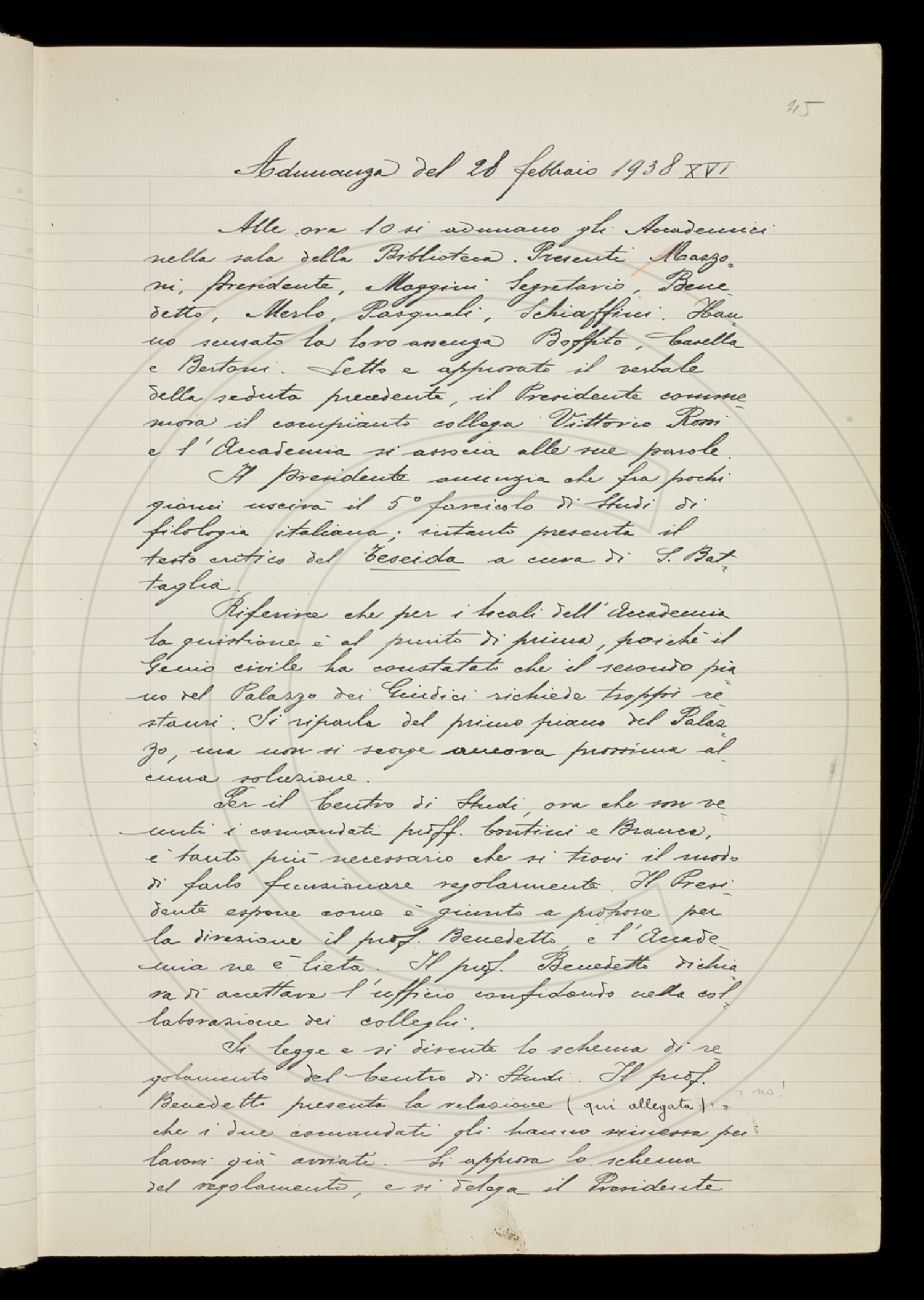 45
Adunanza del 28 febbraio 1938 XVI
Alle ore 10 si adunano gli Accademici
nella sala della Biblioteca. Presenti Mazzo-
ni, Presidente, Maggini Segretario, Bene
detto, Merlo, Pasquali, Schiaffini. Han
no scusato la loro assenza Boffito, Casella
e Bertoni. Letto e approvato il verbale
della seduta precedente, il Presidente comme-
mora il compianto collega Vittorio Rossi
e l'Accademia si associa alle sue parole.
Il Presidente annunzia che fra pochi
giorni uscirà il 5° fascicolo di Studi di
filologia italiana; intanto presenta il
testo critico del Teseida a cura di S. Bat-
taglia.
Riferisce che per i locali dell'Accademia
la quistione è al punto di prima, poichè il
Genio civile ha constatato che il secondo pia-
no del Palazzo dei Giudici richiede troppi re-
stauri. Si riparla del primo piano del Palaz-
zo, ma non si scorge ancora prossima al-
cuna soluzione.
Per il Centro di Studi, ora che son ve-
nuti i comandati proff. Contini e Branca,
è tanto più necessario che si trovi il modo
di farlo funzionare regolarmente. Il Presi-
dente espone come è giunto a propone per
la direzione il prof. Benedetto, e l'Accade-
mia ne è lieta. Il prof. Benedetto dichia-
ra di accettare l'ufficio confidando nella col-
laborazione dei colleghi.
Si legge e si discute lo schema di re-
golamento del Centro di Studi. Il prof.
Benedetto presenta la relazione (qui allegata) ? no!
che i due comandati gli hanno rimessa per
lavori già avviati. Si approva lo schema
del regolamento, e si delega il Presidente